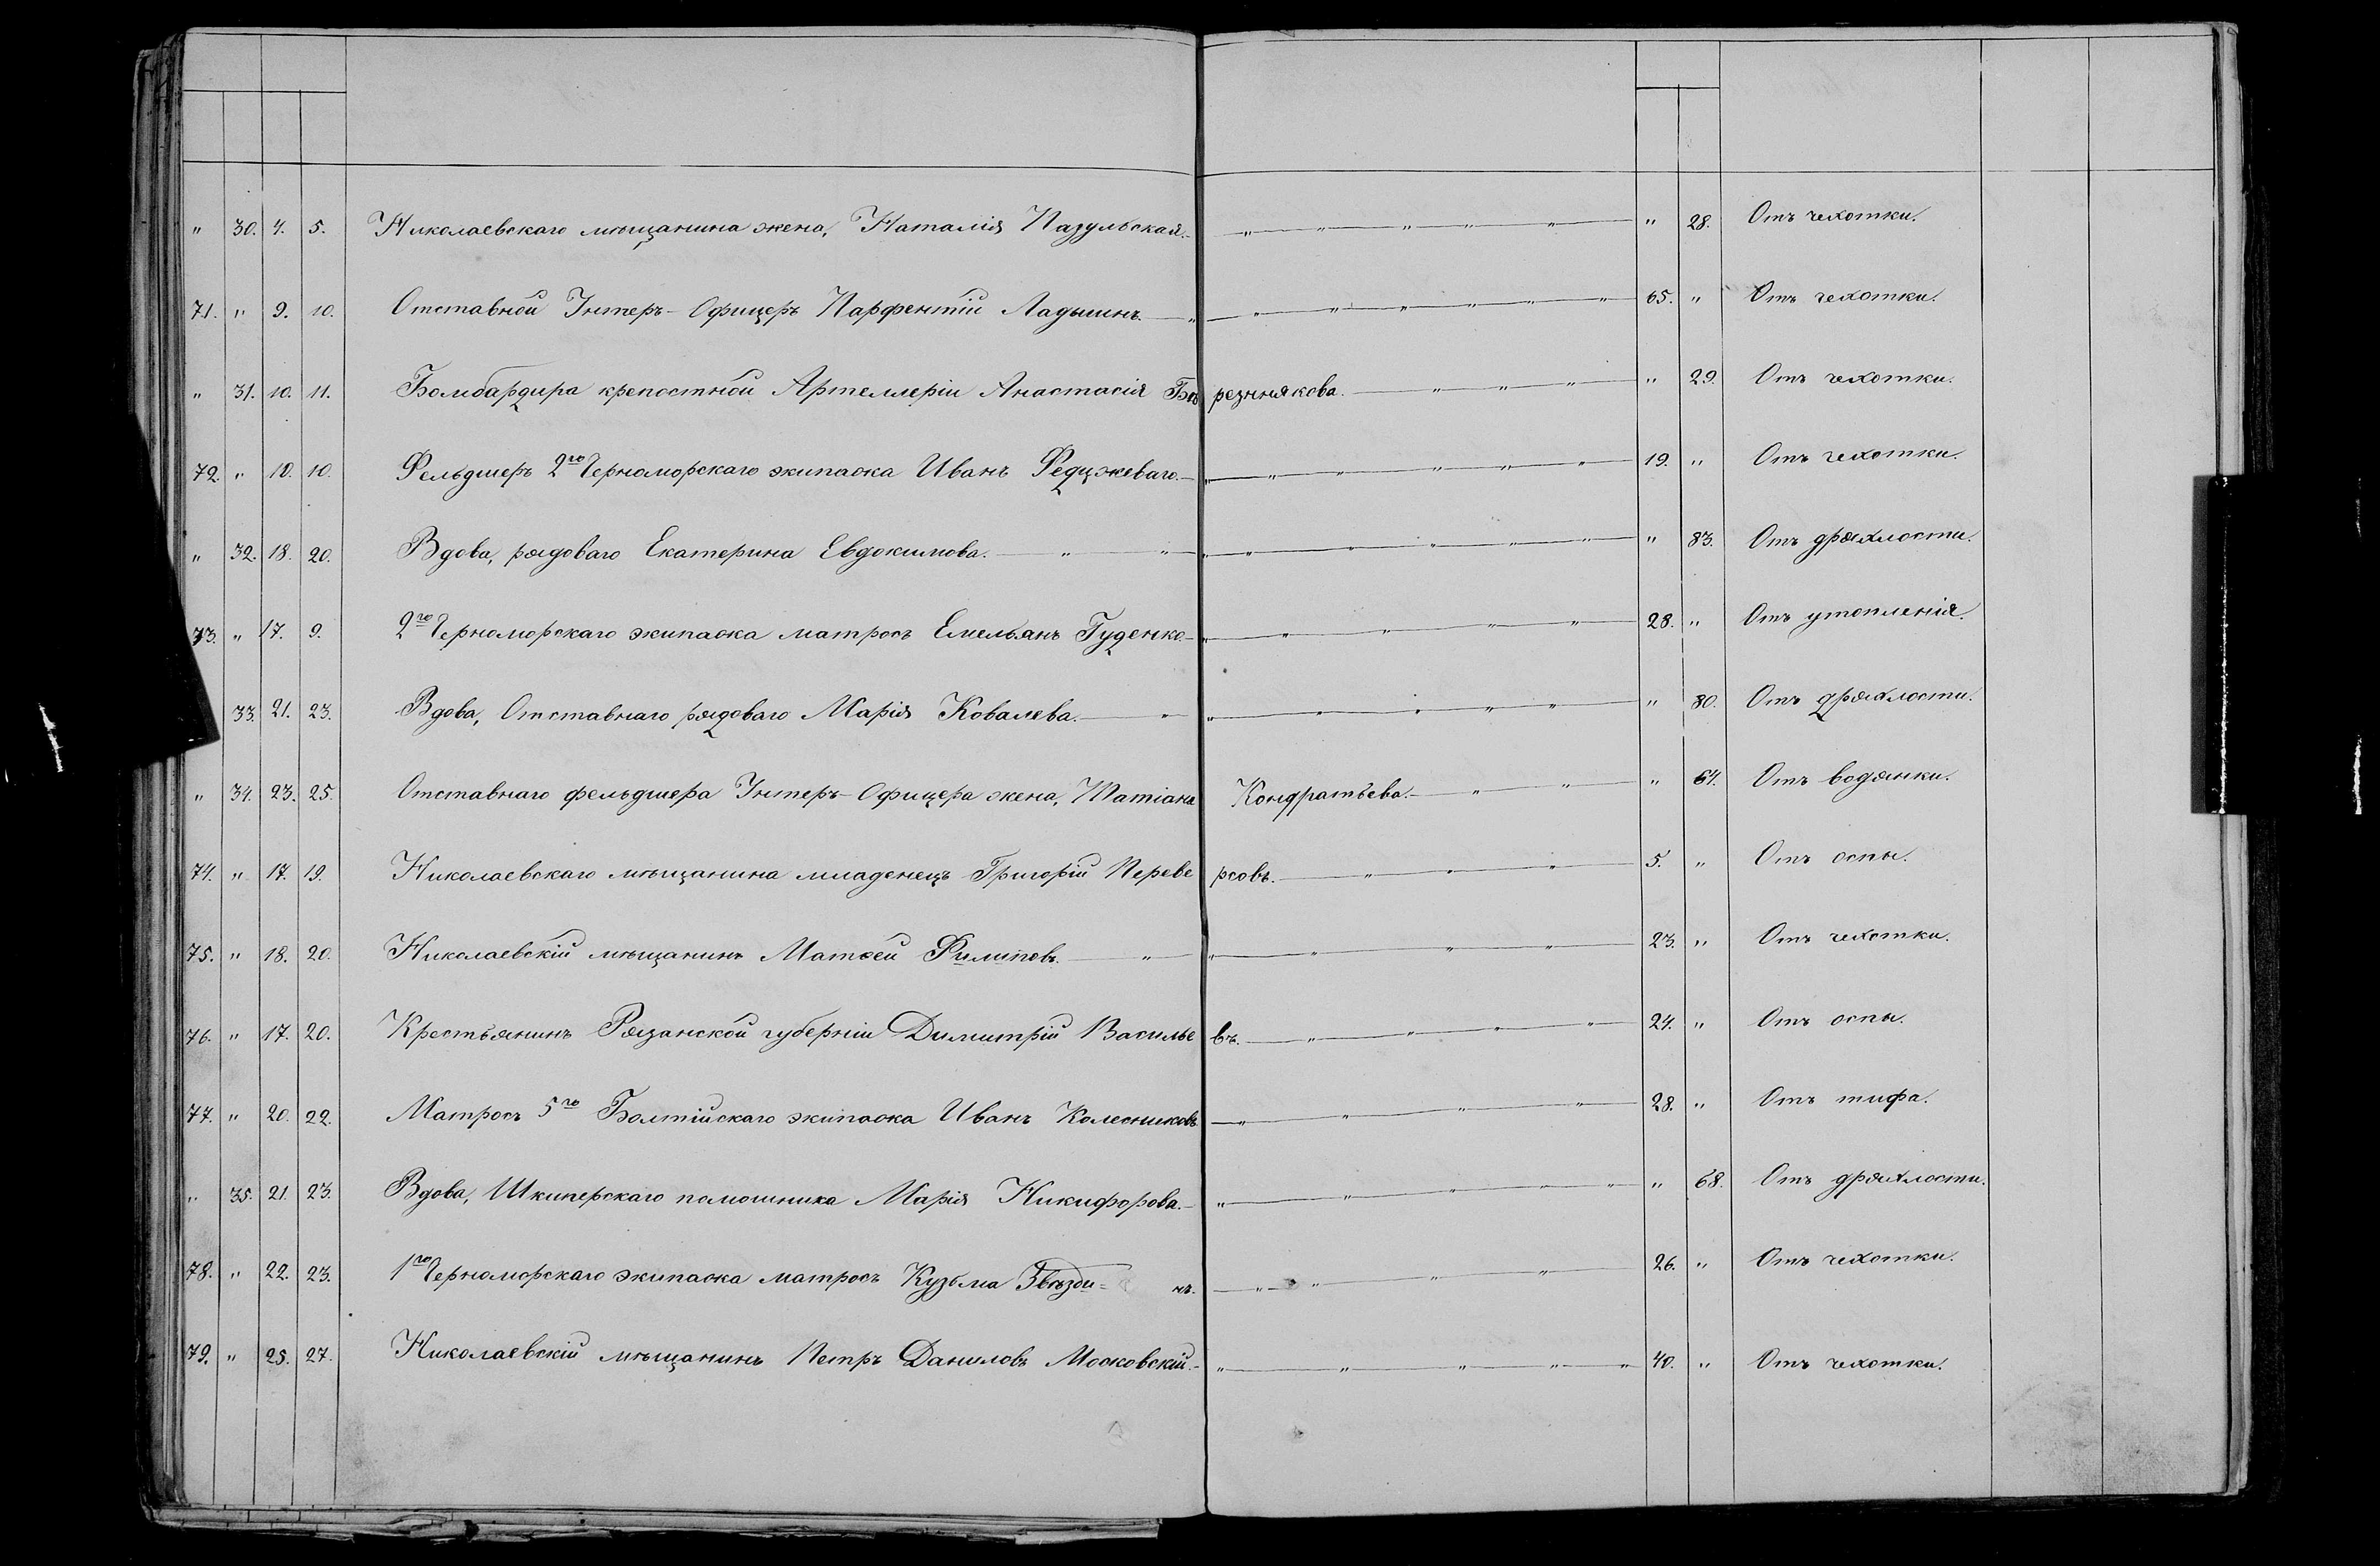 " 30. 4. 5. Николаевскаго мѣщанина жена, Наталія Пазульская. " " " " " " 28. Отъ чехотки.
71. " 9. 10. Отставной Унтеръ-Офицеръ Парфентій Ладышнъ. " " " " " " " 65. " Отъ чехотки.
" 31. 10. 11. Бомбардира крепостной Артеллеріи Анастасія Бе резнякова. " " " " 29. Отъ чехотки.
72. " 10. 10. Фельдшеръ 2го Черноморскаго экипажа Иванъ " " " " " " 19. " Отъ чехотки.
" 32. 18. 20. Вдова, рядоваго Екатерина Евдокимова. " " " " " " " " " 83. Отъ дряхлости.
73. " 17. 9. 2го Черноморскаго экипажа матросъ Емельянъ Гуденко " " " " " 28. " Отъ утопленія.
33. 21. 23. Вдова, Отставнаго рядоваго Марія Ковалева. " " " " " " " 80. Отъ дряхлости.
" 34. 23. 25. Отставнаго фельдшера Унтеръ-Офицера жена, Татіана Кондратьева. " " " 64. Отъ водянки.
74. " 17. 19. Николаевскаго мѣщанина младенецъ Григорій Переве рзовъ. " " " 5. " Отъ оспы.
75. " 18. 20. Николаевскій мѣщанинъ Матѳей Филиповъ. " " " " " 23. " Отъ чехотки.
76. " 17. 20. Крестьянинъ Рязанской губерніи Димитрій Василье въ. " " " " 24. " Отъ оспы.
77. " 20. 22. Матросъ 5го Балтійскаго экипажа Иванъ Колесниковъ " " " " 28. " Отъ тифа.
" 35. 21. 23. Вдова, Шкиперскаго помошника Марія Никифорова. " " " " " " 68. Отъ дряхлости.
78. " 22. 23. 1го Черноморскаго экипажа матросъ Кузьма Гвѣзди- нъ. " " " " 26. " Отъ чехотки.
79. " 25. 27. Николаевскій мѣщанинъ Петръ Даниловъ Московскій. " " " " " 40. " Отъ чехотки.